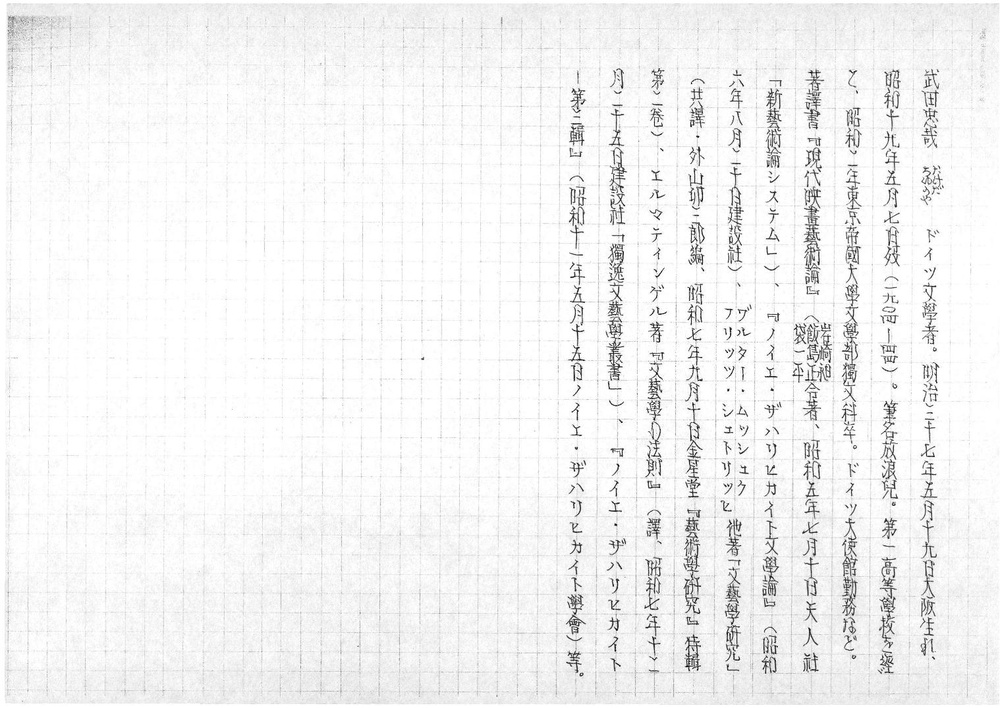 武田忠哉 たけだちゅうや ドイツ文學者。明治三十七年五月十九日大阪生れ、
昭和十九年五月七日歿（一九〇四―四四）。筆名放浪兒。第一高等學校を經
て、昭和二年東京帝國大學文學部獨文科卒。ドイツ大使館勤務など。
著譯書『現代映畫藝術論』（岩崎昶 飯島正 袋一平合著、昭和五年七月十日天人社
「新藝術論システム」）、『ノイエ・ザハリヒカイト文學論』（昭和
六年八月二十日建設社）、ワルター・ムッシュク フリッツ・シュトリッヒ他著『文藝學研究』
（共譯・外山卯三郎編、昭和七年九月十日金星堂『藝術學研究』特輯
第二卷）、エルマティンゲル著『文藝學の法則』（譯、昭和七年十二
月二十五日建設社「獨逸文藝學叢書」）、『ノイエ・ザハリヒカイト
―第三輯』（昭和十一年五月十五日ノイエ・ザハリヒカイト學會）等。